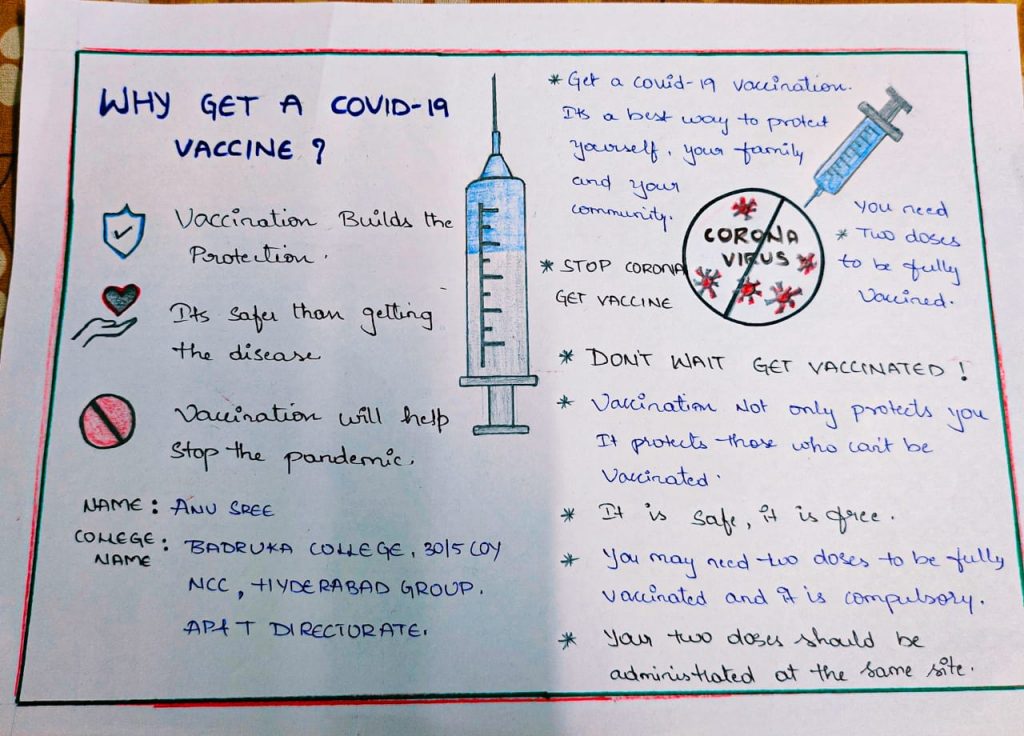 WHY GET A COVID-19
VACCINE ?
Vaccination Builds the
Protection.
Its safer than getting
the disease
Vaccination will help
stop the pandemic.
NAME : ANU SREE
COLLEGE NAME : BADRUKA COLLEGE, 30/5 COY
NCC, HYDERABAD GROUP.
AP&T DIRECTORATE.
* Get a covid-19 vaccination.
Its a best way to protect
yourself, your family
and your
community.
CORONA
VIRUS
You need
* Two doses
to be fully
Vaccined.
* STOP CORONA
GET VACCINE
* DON'T WAIT GET VACCINATED !
* Vaccination Not only protects you
It protects those who can't be
Vaccinated.
* It is safe, it is free.
* You may need two doses to be fully
vaccinated and it is compulsory.
* Your two doses should be
administrated at the same site.